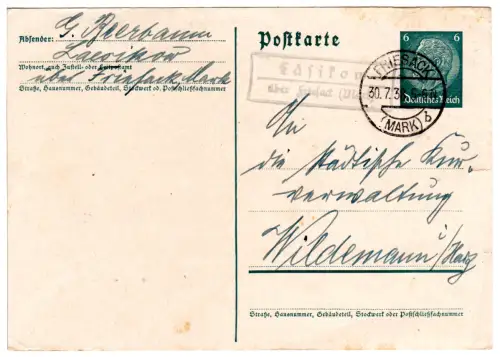 Absender: G. Bierbaum
Lasikow
Wohnort, auch Zustell- oder Leitpostamt
über Friesack Mark
Straße, Hausnummer, Gebäudeteil, Stockwerk od. Postschließfachnummer
Postkarte
6 6
Deutsches Reich
Läsikow
über Friesack (Mark)
FRIESACK
30.7.3
(MARK)
b
An
die städtische Kur-
verwaltung
Wildemann i/Harz
Straße, Hausnummer, Gebäudeteil, Stockwerk oder Postschließfachnummer